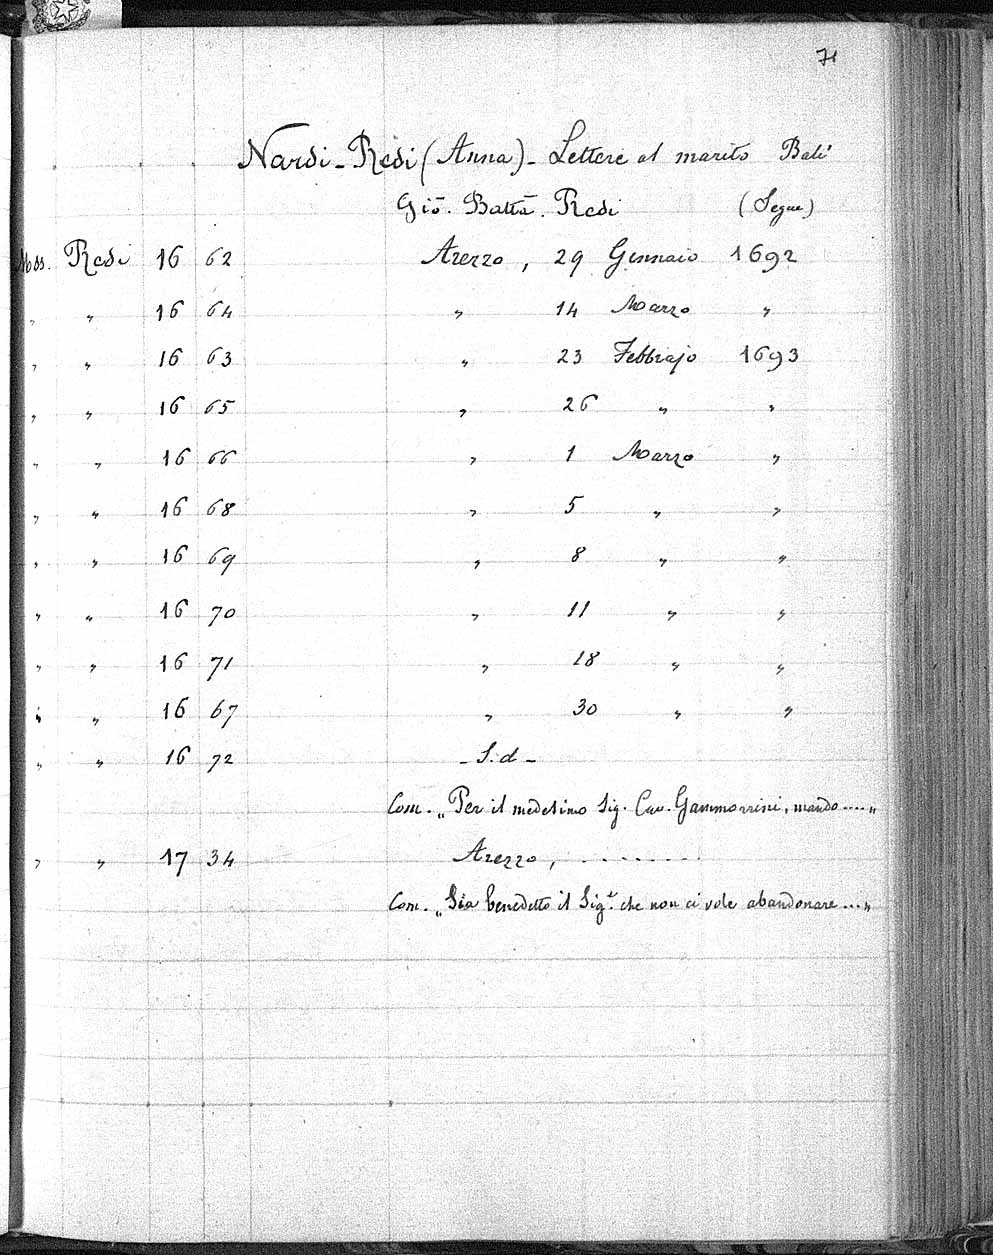 71
Nardi-Redi (Anna) - Lettere al marito Balì
Giō. Battā. Redi (Segue)
Mss. Redi 16 62 Arezzo, 29 Gennaio 1692
„ „ 16 64 „ 14 Marzo „
„ „ 16 63 „ 23 Febbrajo 1693
„ „ 16 65 „ 26 „ „
„ „ 16 66 „ 1 Marzo „
„ „ 16 68 „ 5 „ „
„ „ 16 69 „ 8 „ „
„ „ 16 70 „ 11 „ „
„ „ 16 71 „ 18 „ „
„ „ 16 67 „ 30 „ „
„ „ 16 72 - S.d -
Com. „Per il medesimo Sig. Cav. Gammorrini, mando....„
„ „ 17 34 Arezzo, . . . . . . . .
Com. „Sia benedetto il Sig.r che non ci vole abandonare...„